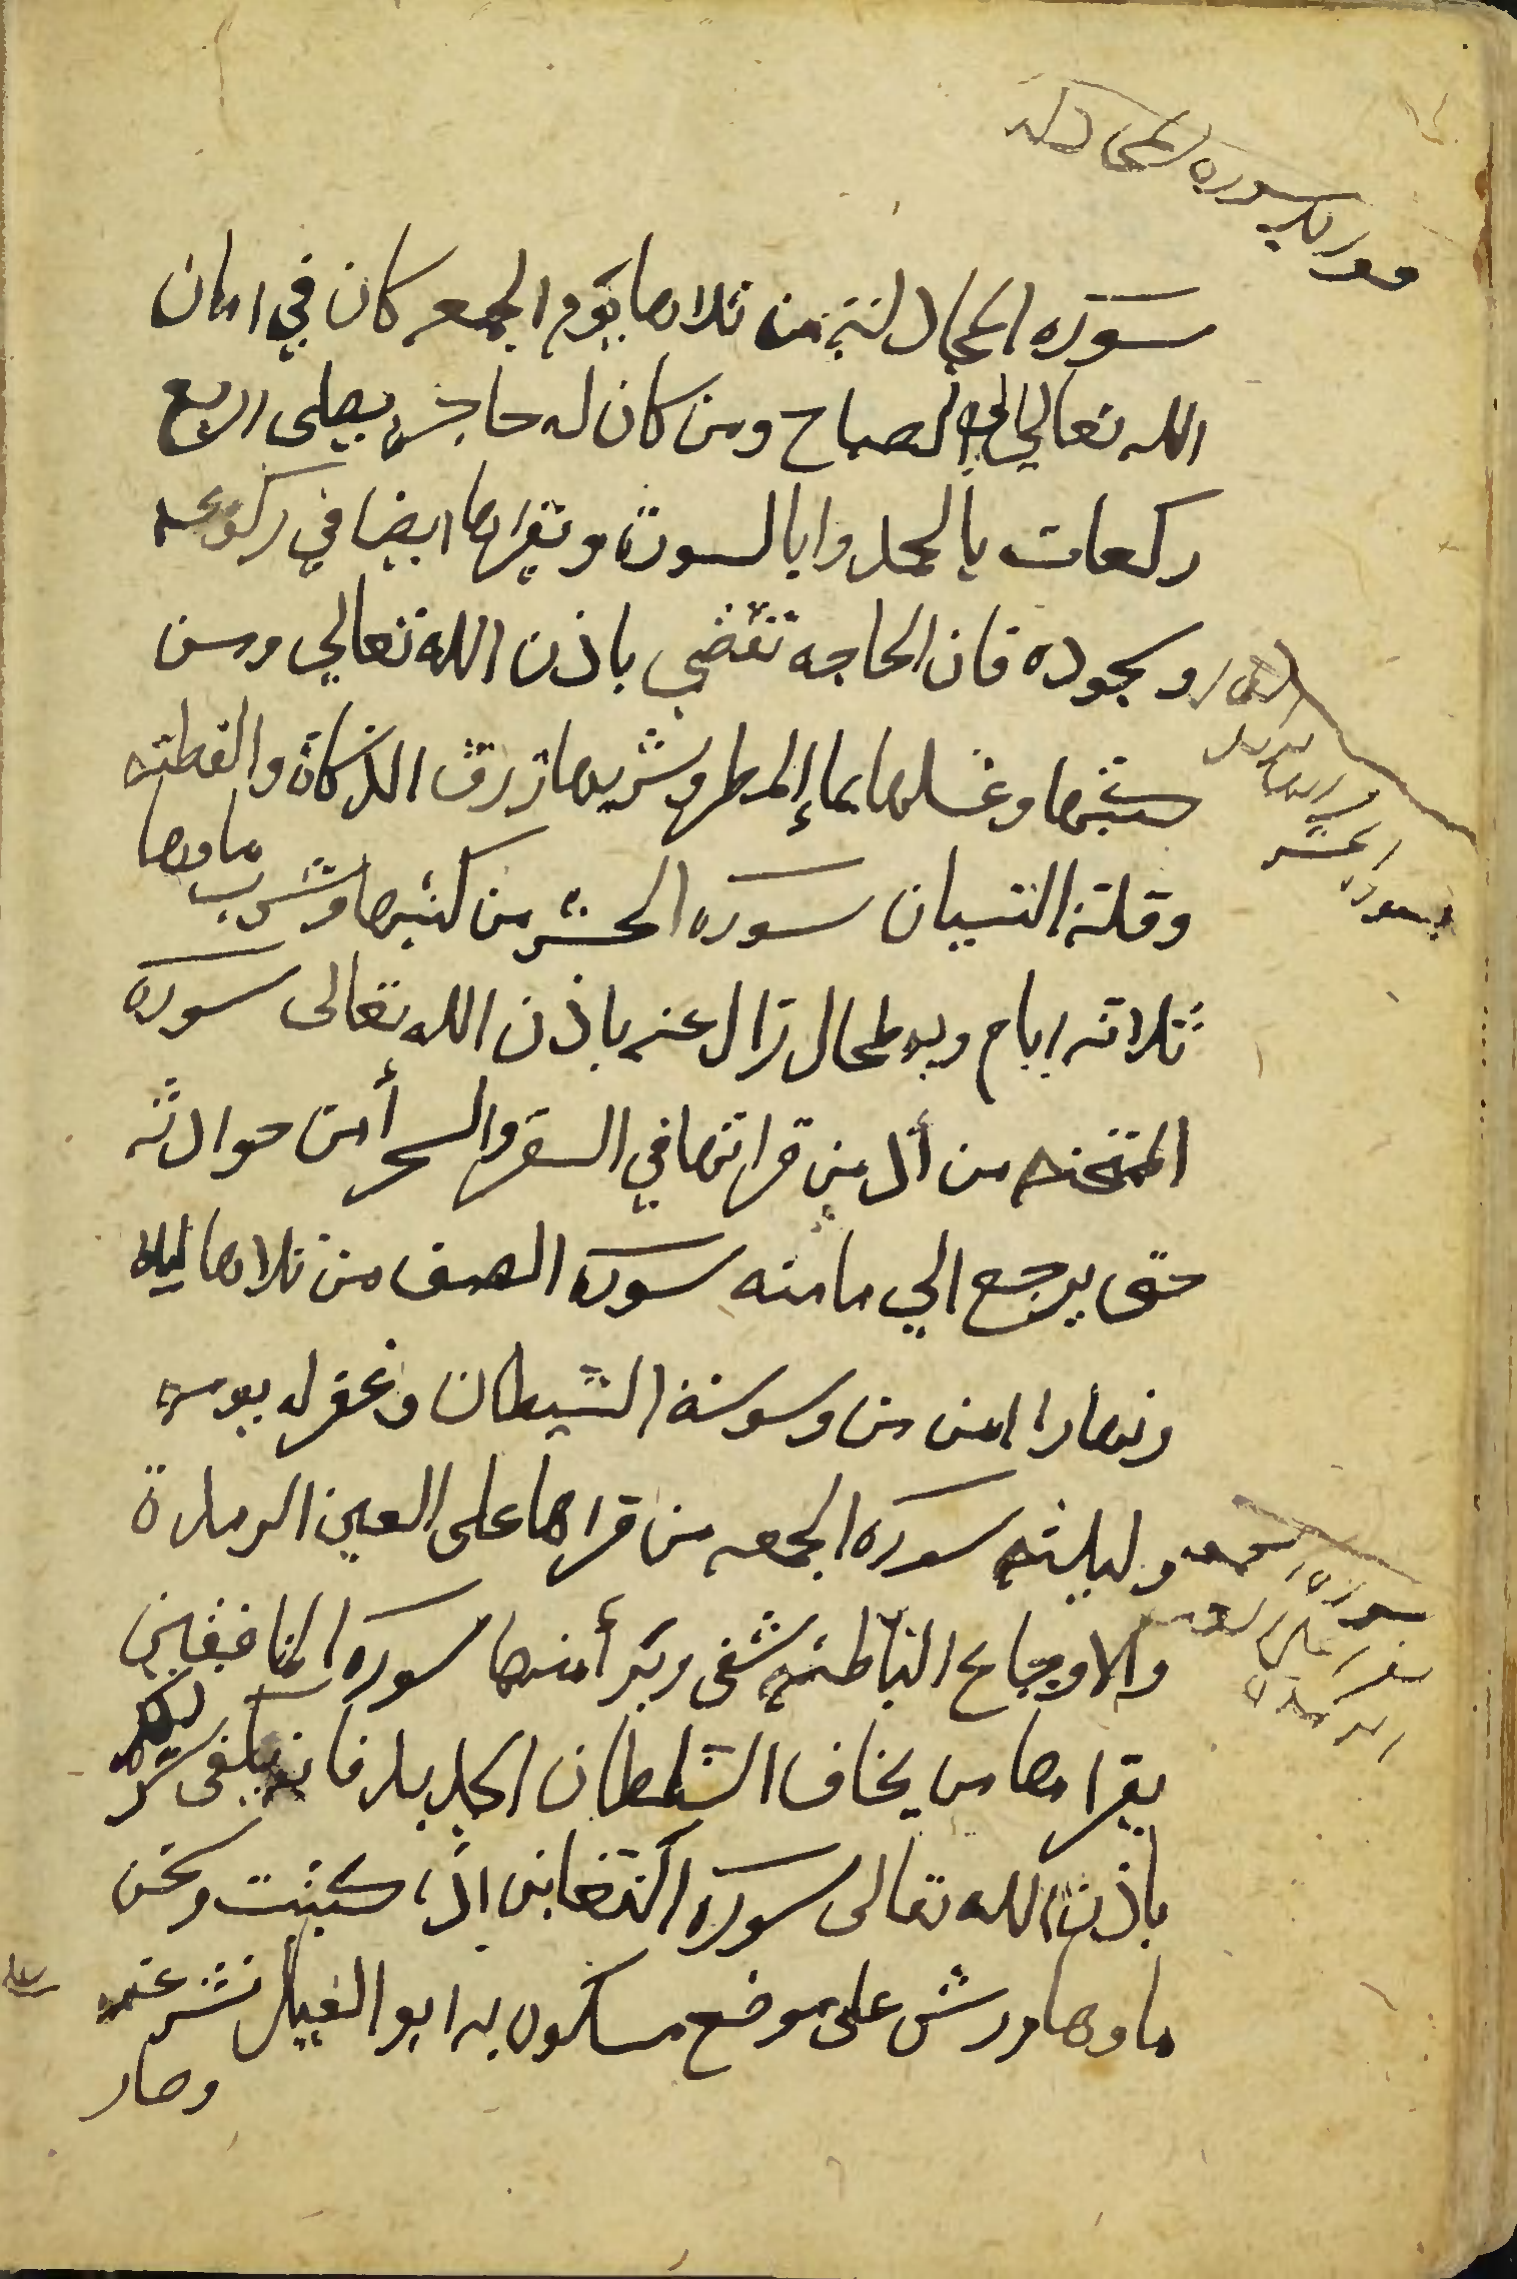 فوايد سورة المجادله
سورة المجادلة من تلاها يوم الجمعه كان في امان
الله تعالي الي الصباح ومن كان له حاجة يصلى اربع
ركعات بالحمد وابالسورة ويقراها ايضا في ركوعه
وسجوده فان الحاجه تقضي باذن الله تعالي ومن
كتبها وغسلها بماء المطر وشربها رزق الذكاة والفطنه
وقلة النسيان سورة الحشر من كتبها وشرب ماوها
ثلاثة ايام وبه طحال زال عنه باذن الله تعالى سورة
الممتحنه من أدمن قراتها في السفر والسحر أمن حوادثه
حتى يرجع الي مامنه سورة الصف من تلاها ليلا
ونهارا امن من وسوسة الشيطان وغفر له يومه
وليلته سورة الجمعه من قراها على العين الرمادة
والاوجاع الباطنه شفى وبرأ منها سورة المنافقين
يقراها من يخاف السلطان فانه يكفى شره
باذن الله تعالى سورة التغابن اذا كتبت ومحى
ماوها ورش على موضع مسكون لم
وصار
سورة الحشر
سورة الجمعه